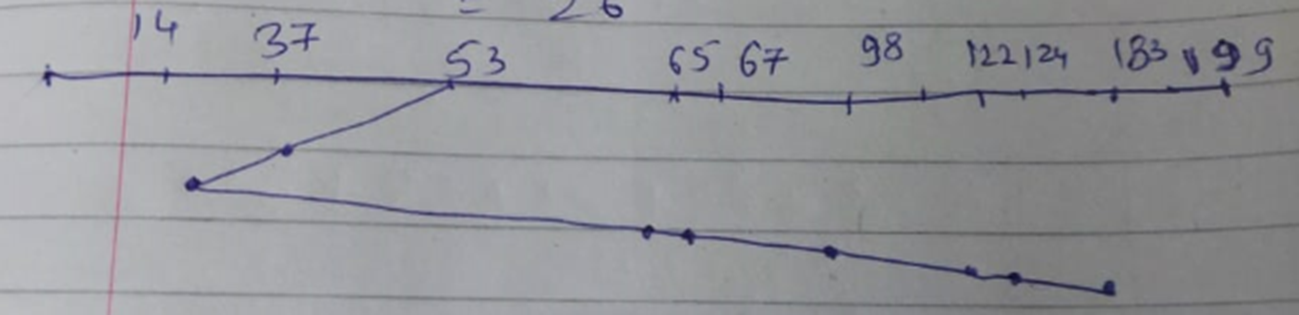 = 26
14 37 53 65 67 98 122 124 183 199